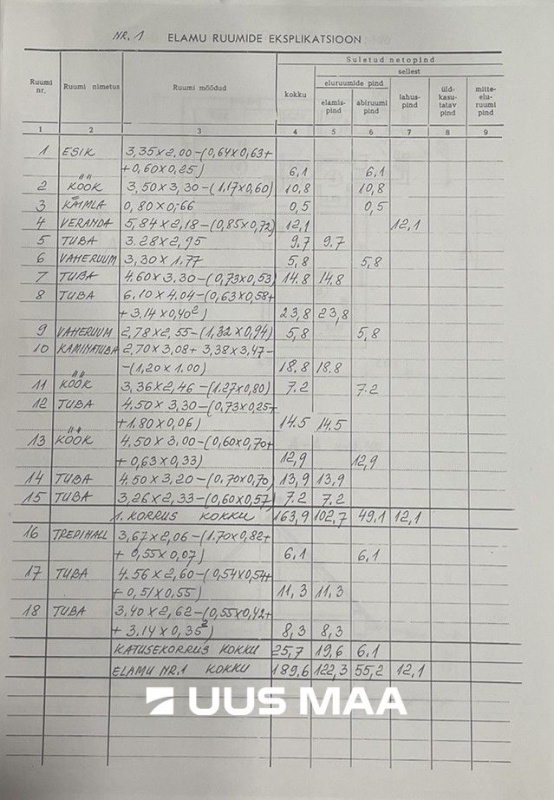 NR. 1 ELAMU RUUMIDE EKSPLIKATSIOON
Suletud netopind
sellest
eluruumide pind
Ruumi nr. Ruumi nimetus Ruumi mõõdud kokku elamis-pind abiruumi pind lahus-pind üld-kasu-tatav pind mitte-elu-ruumi pind
1 2 3 4 5 6 7 8 9
1 ESIK 3,35×2,00-(0,64×0,63+
+0,60×0,25) 6,1 6,1
2 KÖÖK 3,50×3,30-(1,17×0,60) 10,8 10,8
3 KÄIMLA 0,80×0,66 0,5 0,5
4 VERANDA 5,84×2,18-(0,85×0,72) 12,1 12,1
5 TUBA 3.28×2,95 9,7 9,7
6 VAHERUUM 3,30×1.77 5,8 5,8
7 TUBA 4,60×3,30-(0,73×0,53) 14.8 14,8
8 TUBA 6,10×4.04-(0,63×0,58+
+3,14×0,40²) 23,8 23,8
9 VAHERUUM 2,78×2,55-(1,32×0,94) 5,8 5,8
10 KAMINATUBA 2,70×3,08+3,38×3,47-
-(1,20×1.00) 18.8 18.8
11 KÖÖK 3,36×2,46-(1.27×0,80) 7.2 7.2
12 TUBA 4,50×3,30-(0,73×0,25+
+1,80×0,06) 14.5 14,5
13 KÖÖK 4,50×3,00-(0,60×0,70+
+0,63×0,33) 12,9 12,9
14 TUBA 4,50×3,20-(0,70×0,70) 13,9 13,9
15 TUBA 3,26×2,33-(0,60×0,57) 7.2 7.2
1. KORRUS KOKKU 163,9 102,7 49,1 12,1
16 TREPIHALL 3,67×2,06-(1.70×0,82+
+0,55×0,07) 6,1 6,1
17 TUBA 4.56×2,60-(0,54×0,54+
+0,51×0,55) 11,3 11,3
18 TUBA 3,40×2,62-(0,55×0,42+
+3.14×0,35²) 8,3 8,3
KATUSEKORRUS KOKKU 25,7 19,6 6,1
ELAMU NR.1 KOKKU 189,6 122,3 55,2 12,1
UUS MAA